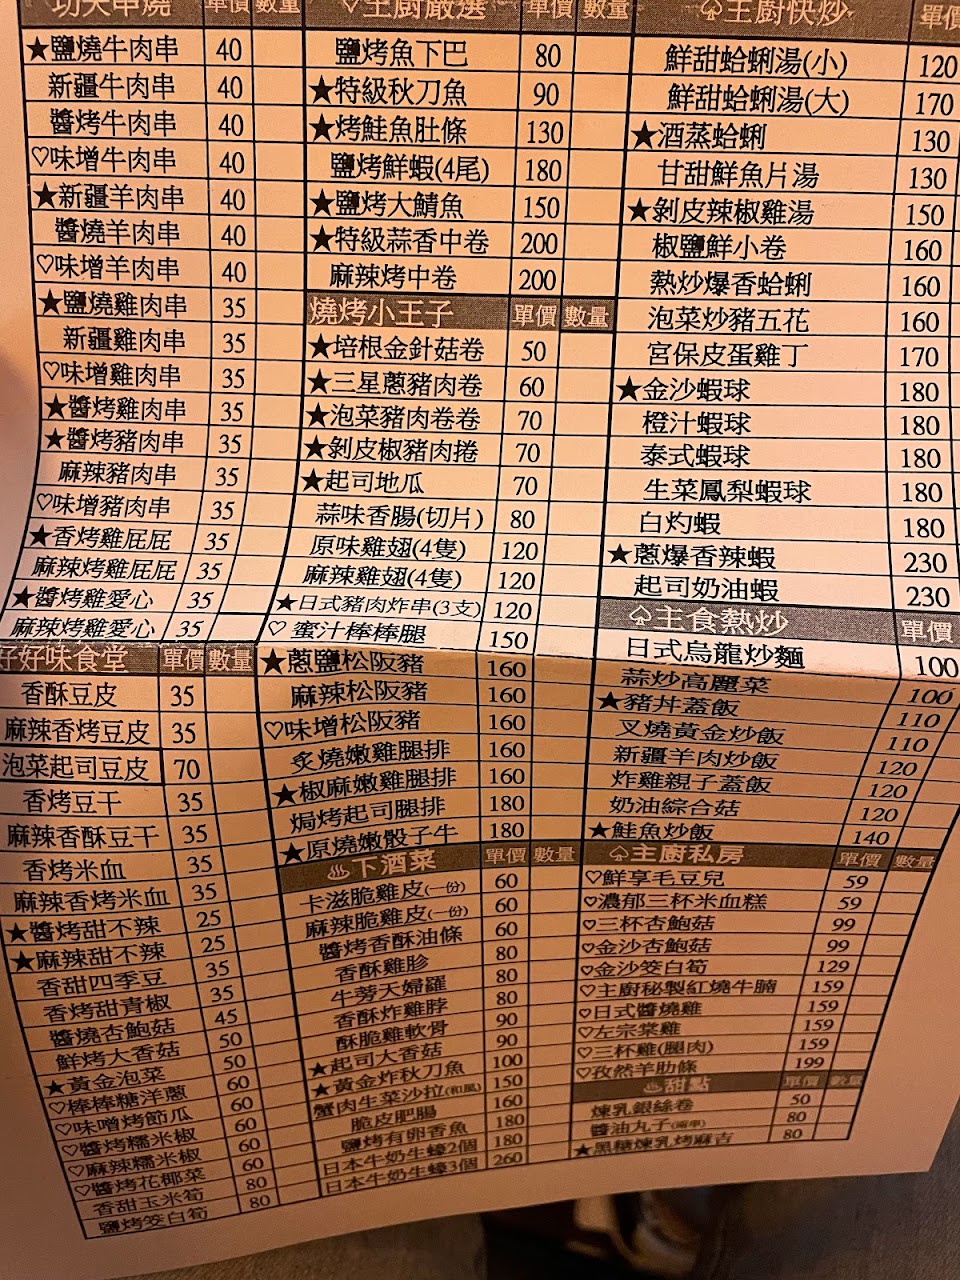 功夫串燒 單價 數量
★鹽燒牛肉串 40
新疆牛肉串 40
醬烤牛肉串 40
♡味增牛肉串 40
★新疆羊肉串 40
醬燒羊肉串 40
♡味增羊肉串 40
★鹽燒雞肉串 35
新疆雞肉串 35
♡味增雞肉串 35
★醬烤雞肉串 35
★醬烤豬肉串 35
麻辣豬肉串 35
♡味增豬肉串 35
★香烤雞屁屁 35
麻辣烤雞屁屁 35
★醬烤雞愛心 35
麻辣烤雞愛心 35
好好味食堂 單價 數量
香酥豆皮 35
麻辣香烤豆皮 35
泡菜起司豆皮 70
香烤豆干 35
麻辣香酥豆干 35
香烤米血 35
麻辣香烤米血 35
★醬烤甜不辣 25
★麻辣甜不辣 25
香甜四季豆 35
香烤甜青椒 35
醬燒杏鮑菇 45
鮮烤大香菇 50
★黃金泡菜 50
♡棒棒糖洋蔥 60
♡味噌烤節瓜 60
♡醬烤糯米椒 60
♡麻辣糯米椒 60
♡醬烤花椰菜 60
香甜玉米筍 80
鹽烤筊白筍 80
♡主廚嚴選 單價 數量
鹽烤魚下巴 80
★特級秋刀魚 90
★烤鮭魚肚條 130
鹽烤鮮蝦(4尾) 180
★鹽烤大鯖魚 150
★特級蒜香中卷 200
麻辣烤中卷 200
燒烤小王子 單價 數量
★培根金針菇卷 50
★三星蔥豬肉卷 60
★泡菜豬肉卷卷 70
★剝皮椒豬肉捲 70
★起司地瓜 70
蒜味香腸(切片) 80
原味雞翅(4隻) 120
麻辣雞翅(4隻) 120
★日式豬肉炸串(3支) 120
♡蜜汁棒棒腿 150
★蔥鹽松阪豬 160
麻辣松阪豬 160
♡味增松阪豬 160
炙燒嫩雞腿排 160
★椒麻嫩雞腿排 160
焗烤起司腿排 180
★原燒嫩骰子牛 180
♨下酒菜 單價 數量
卡滋脆雞皮(一份) 60
麻辣脆雞皮(一份) 60
醬烤香酥油條 60
香酥雞胗 80
牛蒡天婦羅 80
香酥炸雞脖 80
酥脆雞軟骨 90
★起司大香菇 90
★黃金炸秋刀魚 100
蟹肉生菜沙拉(和風) 150
脆皮肥腸 160
鹽烤有卵香魚 180
日本牛奶生蠔2個 180
日本牛奶生蠔3個 260
♤主廚快炒 單價
鮮甜蛤蜊湯(小) 120
鮮甜蛤蜊湯(大) 170
★酒蒸蛤蜊 130
甘甜鮮魚片湯 130
★剝皮辣椒雞湯 150
椒鹽鮮小卷 160
熱炒爆香蛤蜊 160
泡菜炒豬五花 160
宮保皮蛋雞丁 170
★金沙蝦球 180
橙汁蝦球 180
泰式蝦球 180
生菜鳳梨蝦球 180
白灼蝦 180
★蔥爆香辣蝦 230
起司奶油蝦 230
♤主食熱炒 單價
日式烏龍炒麵 100
蒜炒高麗菜 100
★豬丼蓋飯 110
叉燒黃金炒飯 110
新疆羊肉炒飯 120
炸雞親子蓋飯 120
奶油綜合菇 120
★鮭魚炒飯 140
♤主廚私房 單價 數量
♡鮮享毛豆兒 59
♡濃郁三杯米血糕 59
♡三杯杏鮑菇 99
♡金沙杏鮑菇 99
♡金沙筊白筍 129
♡主廚秘製紅燒牛腩 159
♡日式醬燒雞 159
♡左宗棠雞 159
♡三杯雞(腿肉) 159
♡孜然羊肋條 199
♨甜點 單價 數量
煉乳銀絲卷 50
醬油丸子 80
★黑糖煉乳烤麻吉 80